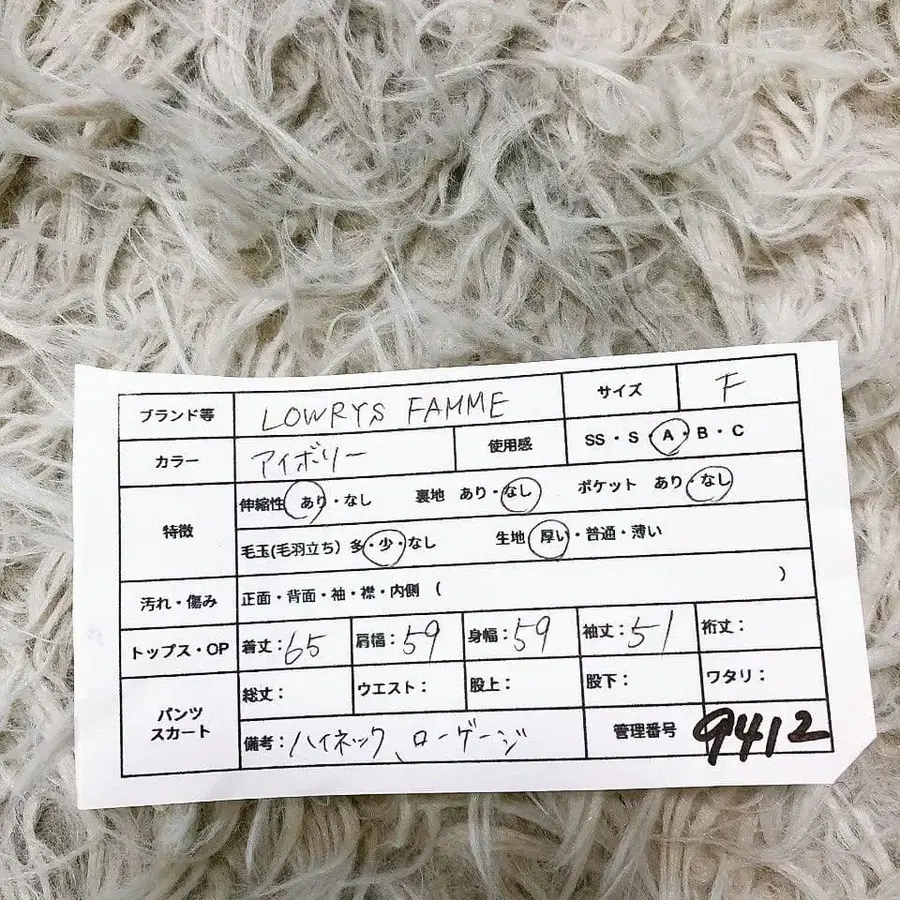 ブランド等 LOWRYS FAMME サイズ F
カラー アイボリー 使用感 SS・S・A・B・C
特徴 伸縮性 あり・なし 裏地 あり・なし ポケット あり・なし
毛玉(毛羽立ち) 多・少・なし 生地 厚い・普通・薄い
汚れ・傷み 正面・背面・袖・襟・内側 ( )
トップス・OP 着丈:65 肩幅:59 身幅:59 袖丈:51 裄丈:
パンツ スカート 総丈: ウエスト: 股上: 股下: ワタリ:
備考:ハイネック、ローゲージ 管理番号 9412